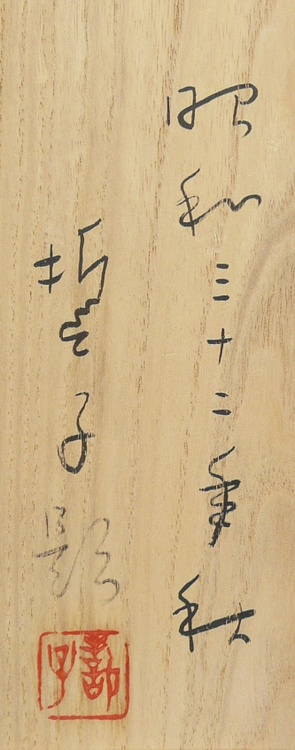 昭和三十二年秋
誓子題